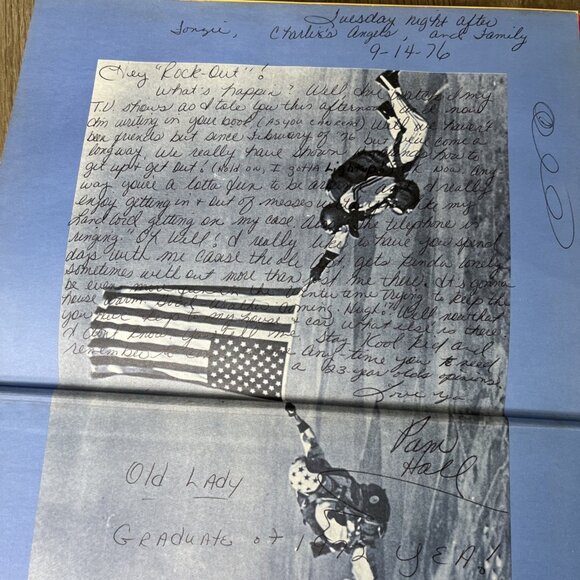 Tuesday night after
Tonzie, Charlie's Angels, and Family
9-14-76
Hey "Rock-Out"!
What's happin? Well, I've my
T.V. shows as I told you this afternoon now
I'm writing in your book (as you can see) Well we haven't
been friends but since February of '76 but we come a
long way. We really have shown how to
get up & get out! (Hold on, I gotta now any
way you're a lotta fun to be around I really
enjoy getting in & out of messes my
landlord getting on my case, the telephone is
ringing." Oh Well! I really like to have you spend
days with me cause the gets kinda lonely
sometimes with out more than just me there. It's gonna
be even more in the winter time trying to keep the
house warm. Winter's coming. Hugh! Well now that
you my house & car, what else is there
I don't know, you tell me. Stay Kool kid and
remember any time you need
a 23 year olds opinion
Love ya
Pam
Hall
Old Lady
Graduate of 1972 YEA!